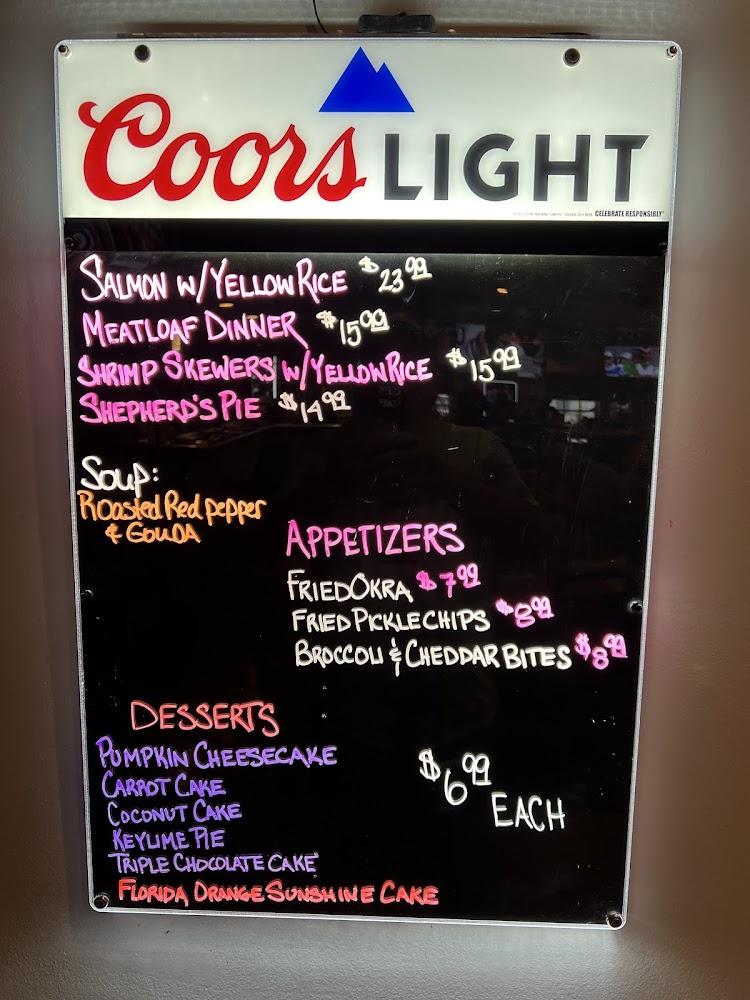 Coors LIGHT
CELEBRATE RESPONSIBLY
SALMON W/YELLOW RICE $23.99
MEATLOAF DINNER $15.99
SHRIMP SKEWERS W/YELLOW RICE $15.99
SHEPHERD'S PIE $14.99
SOUP:
Roasted Red pepper
& GOUDA
APPETIZERS
FRIED OKRA $7.99
FRIED PICKLE CHIPS $8.99
BROCCOLI & CHEDDAR BITES $8.99
DESSERTS
PUMPKIN CHEESECAKE
CARROT CAKE
COCONUT CAKE
KEYLIME PIE
TRIPLE CHOCOLATE CAKE
FLORIDA ORANGE SUNSHINE CAKE
$6.99
EACH